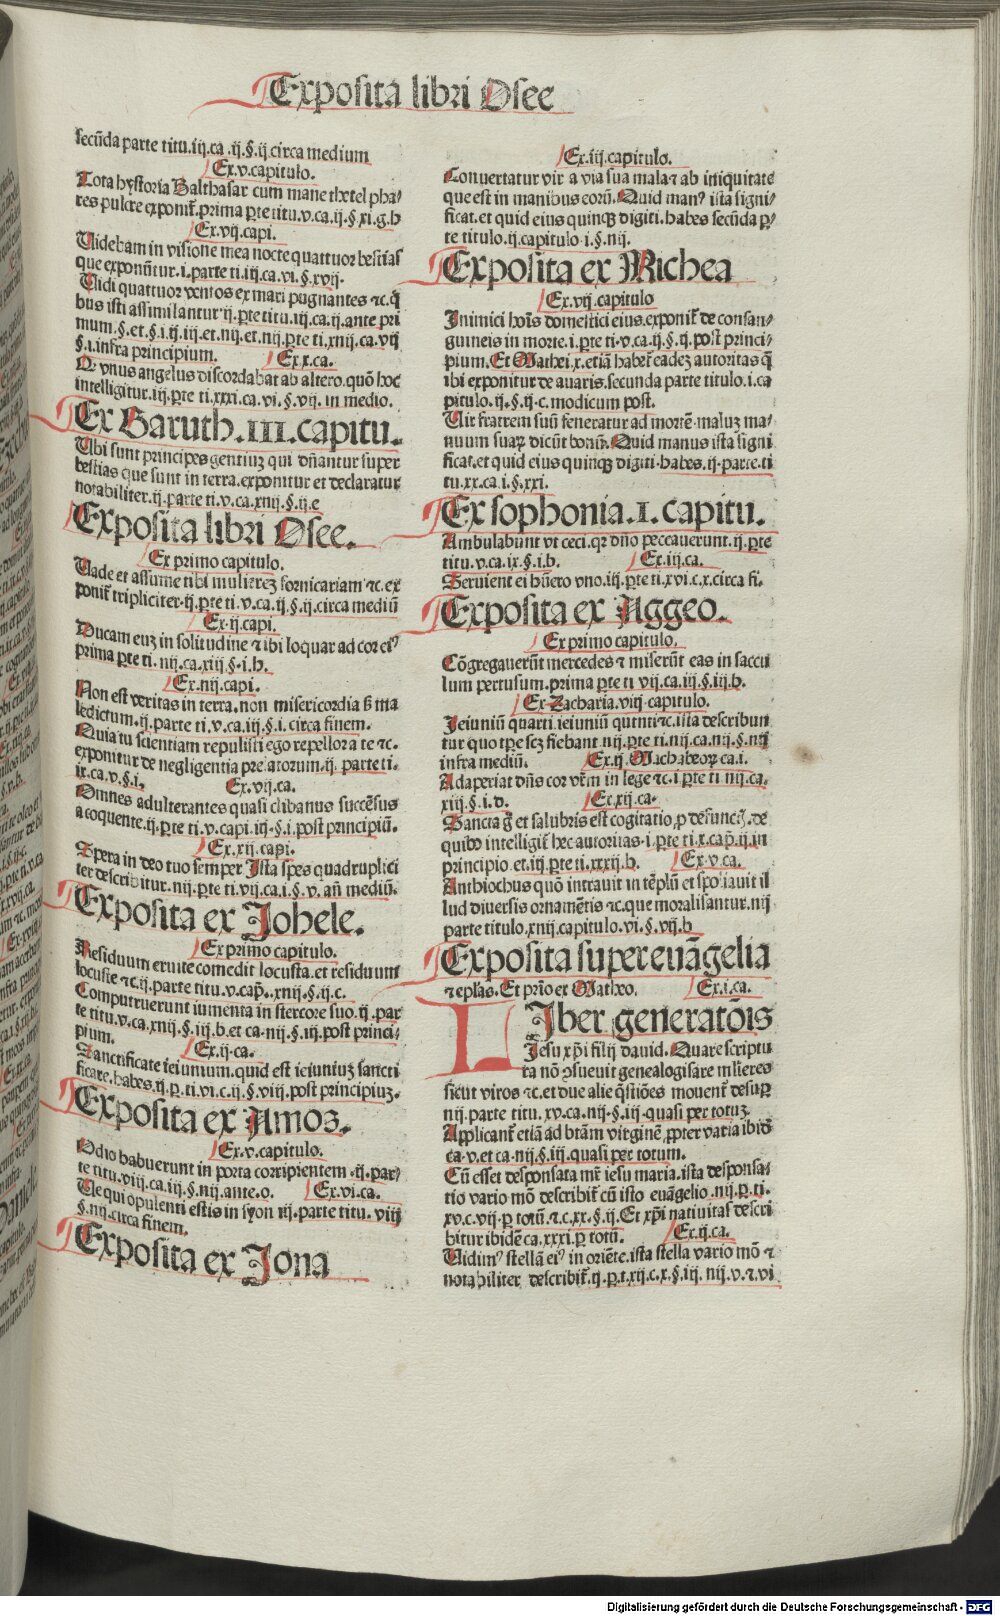 Exposita libri Osee
secūda parte titu.iij.ca .ij.§.ij.circa medium
Ex.v.capitulo.
Tota hystoria Balthasar cum mane thetel pha⸗
res pulcre exponit̃.prima ꝑte titu.v.ca.ij.§ xi.g.h
Ex.vij.capi.
Uidebam in visione mea nocte quattuor bestias
que exponūtur.i.parte ti.iij.ca.vi.§.xvij.
Uidi quattuor ventos ex mari pugnantes ⁊c.q̄
bus isti assimilantur.ij.ꝑte titu.iij.ca.ij.ante pri
mum.§.et.§.i.ij.iij.et.nij.et.nij.ꝑte ti.xnij.ca.vij
§.i.infra principium.
Ex.x.ca.
Qꝛ vnus angelus discordabat ab altero.quō hoc
intelligitur.iij.ꝑte ti.xxxi.ca.vi.§.vij. in medio.
Ex Baruth.III.capitu.
Ubi sunt principes gentiuꝫ qui dn̄antur super
bestias que sunt in terra.exponitur et declaratur
notabiliter.ij.parte ti.v.ca.xnij.§.ij.e
Exposita libri Osee.
Ex primo capitulo.
Uade et assume tibi muliereꝫ fornicariam ⁊c.ex
ponit̃ tripliciter.ij.ꝑte ti.v.ca.ij.§.ij.circa mediū
Ex.ij.capi.
Ducam euꝫ in solitudine ⁊ ibi loquar ad cor eiꝰ
prima ꝑte ti. nij.ca.xiij.§.i.h.
Ex.nij.capi.
Non est veritas in terra.non misericordia sꝫ ma
ledictum.ij.parte ti.v.ca.iij.§.i.circa finem.
Quia tu scientiam repulisti ego repellora te ⁊c.
exponitur de negligentia prelatorum.ij. parte ti.
ix.ca.v.§.i.
Ex.vij.ca.
Omnes adulterantes quasi clibanus succēsus
a coquente.ij.ꝑte ti.v.capi.iij.§.i.post principiū.
Ex.xij.capi.
Spera in deo tuo semper Ista spes quadruplici
ter describitur.nij.ꝑte ti.vij.ca.i.§.v. an̄ mediū.
Exposita ex Johele.
Ex primo capitulo.
Residuum eruite comedit locusta.et residuum
locuste ⁊c.ij.parte titu.v.cap̄.xnij.§.ij.c.
Computruerunt iumenta in stercore suo.ij.par
te titu.v.ca.xnij.§.iij.b.et ca.nij.§.iij.post princi⸗
pium.
Ex.ij.ca.
Sanctificate ieiunium.quid est ieiuniuꝫ sancti
ficare.habes.ij.ꝑ.ti.vi.c.ij.§.viij.post principiuꝫ.
Exposita ex Amoꝫ.
Ex.v.capitulo.
Odio habuerunt in porta corripientem.ij.par⸗
te titu.viij.ca.iij.§.nij.ante.o.
Ex.vi.ca.
Ue qui opulenti estis in syon nij.parte titu. viij
§.nij.circa finem.
Exposita ex Jona
Ex.iij.capitulo.
Conuertatur vir a via sua mala ⁊ ab iniquitate
que est in manibus eorū.Quid manꝰ ista signi⸗
ficat.et quid eius quinqꝫ digiti.habes secūda ꝑ⸗
te titulo.ij.capitulo.i.§.nij.
Exposita ex Michea
Ex.vij.capitulo
Inimici hoīs domestici eius.exponit̃ de consan⸗
guineis in morte.i.ꝑte ti.v.ca.ij.§.ij.post princi⸗
pium.Et Mathei.x.etiā habet̃ eadeꝫ autoritas q̄
ibi exponitur de auaris.secunda parte titulo.i.ca
pitulo.ij.§.ij.c.modicum post.
Uir fratrem suū feneratur ad mortē.maluꝫ ma⸗
nuum suaꝝ dicūt bonū.Quid manus ista signi
ficat.et quid eius quinqꝫ digiti.habes.ij.parte.ti
tu.xx.ca.i.§.xxi.
Ex sophonia.I.capitu.
Ambulabunt vt ceci.qꝛ dn̄o peccauerunt.ij.ꝑte
titu.v.ca.ix.§.i.b.
Ex.iij.ca.
Seruient ei hūero vno.iij.ꝑte ti.xvi.c.x.circa fi.
Exposita ex Aggeo.
Ex primo capitulo.
Cōgregauerūt mercedes ⁊ miserūt eas in saccu
lum pertusum.prima ꝑte ti vij.ca.iij.§.iij.b.
Ex Zacharia.viij capitulo.
Ieiuniū quarti ieiuniū quinti ⁊c.ista describun
tur quo tꝑe scꝫ fiebant.nij.ꝑte ti.nij.ca.nij.§.nij
infra mediū.
Ex.ij.Machabeoꝝ ca.i.
Adaperiat dn̄s cor vr̄m in lege ⁊c.i ꝑte ti nij ca.
xiij.§.i.d.
Ex.xij.ca.
Sancta g̊ et salubris est cogitatio ꝓ defunc̄.de
quibꝰ intelligit̃ hec autoritas.i.ꝑte ti.x.cap̄.ij.in
principio.et.iij.ꝑte ti.xxxij.h.
Ex.v.ca.
Anthiochus quō intrauit in tēplū et spoliauit il
lud diuersis ornamētis ⁊c.que moralisantur.nij
parte titulo.xnij.capitulo.vi.§.vij.h
Exposita super euāgelia
⁊ ep̄las.Et prīo ex Matheo.
Ex.i.ca.
LIber generatōis
Jesu xp̄i filij dauid.Quare scriptu
ra nō ꝯsueuit genealogisare mlieres
sicut viros ⁊c.et due alie q̄stiōes mouent̃ desuꝑ
nij.parte titu. xv.ca.nij.§.iij.quasi per totuꝫ.
Applicant̃ etiā ad btām virginē ꝓpter varia ibidē
ca.v.et ca.nij.§.iij.quasi per totum.
Cū esset desponsata mr̄ iesu maria.ista desponsa⸗
tio vario mō describit̃ cū isto euāgelio.nij.ꝑ.ti.
xv.c.vij.ꝑ totū.⁊ c.xx.§.ij.Et xp̄i natiuitas descri
bitur ibidē ca.xxxi.ꝑ totū.
Ex.ij.ca.
Uidimꝰ stellā eiꝰ in oriēte.ista stella vario mō ⁊
notabiliter describit̃.ij.ꝑ.t.xij.c.x.§.iij. nij.v.⁊.vi
Digitalisierung gefördert durch die Deutsche Forschungsgemeinschaft - DFG